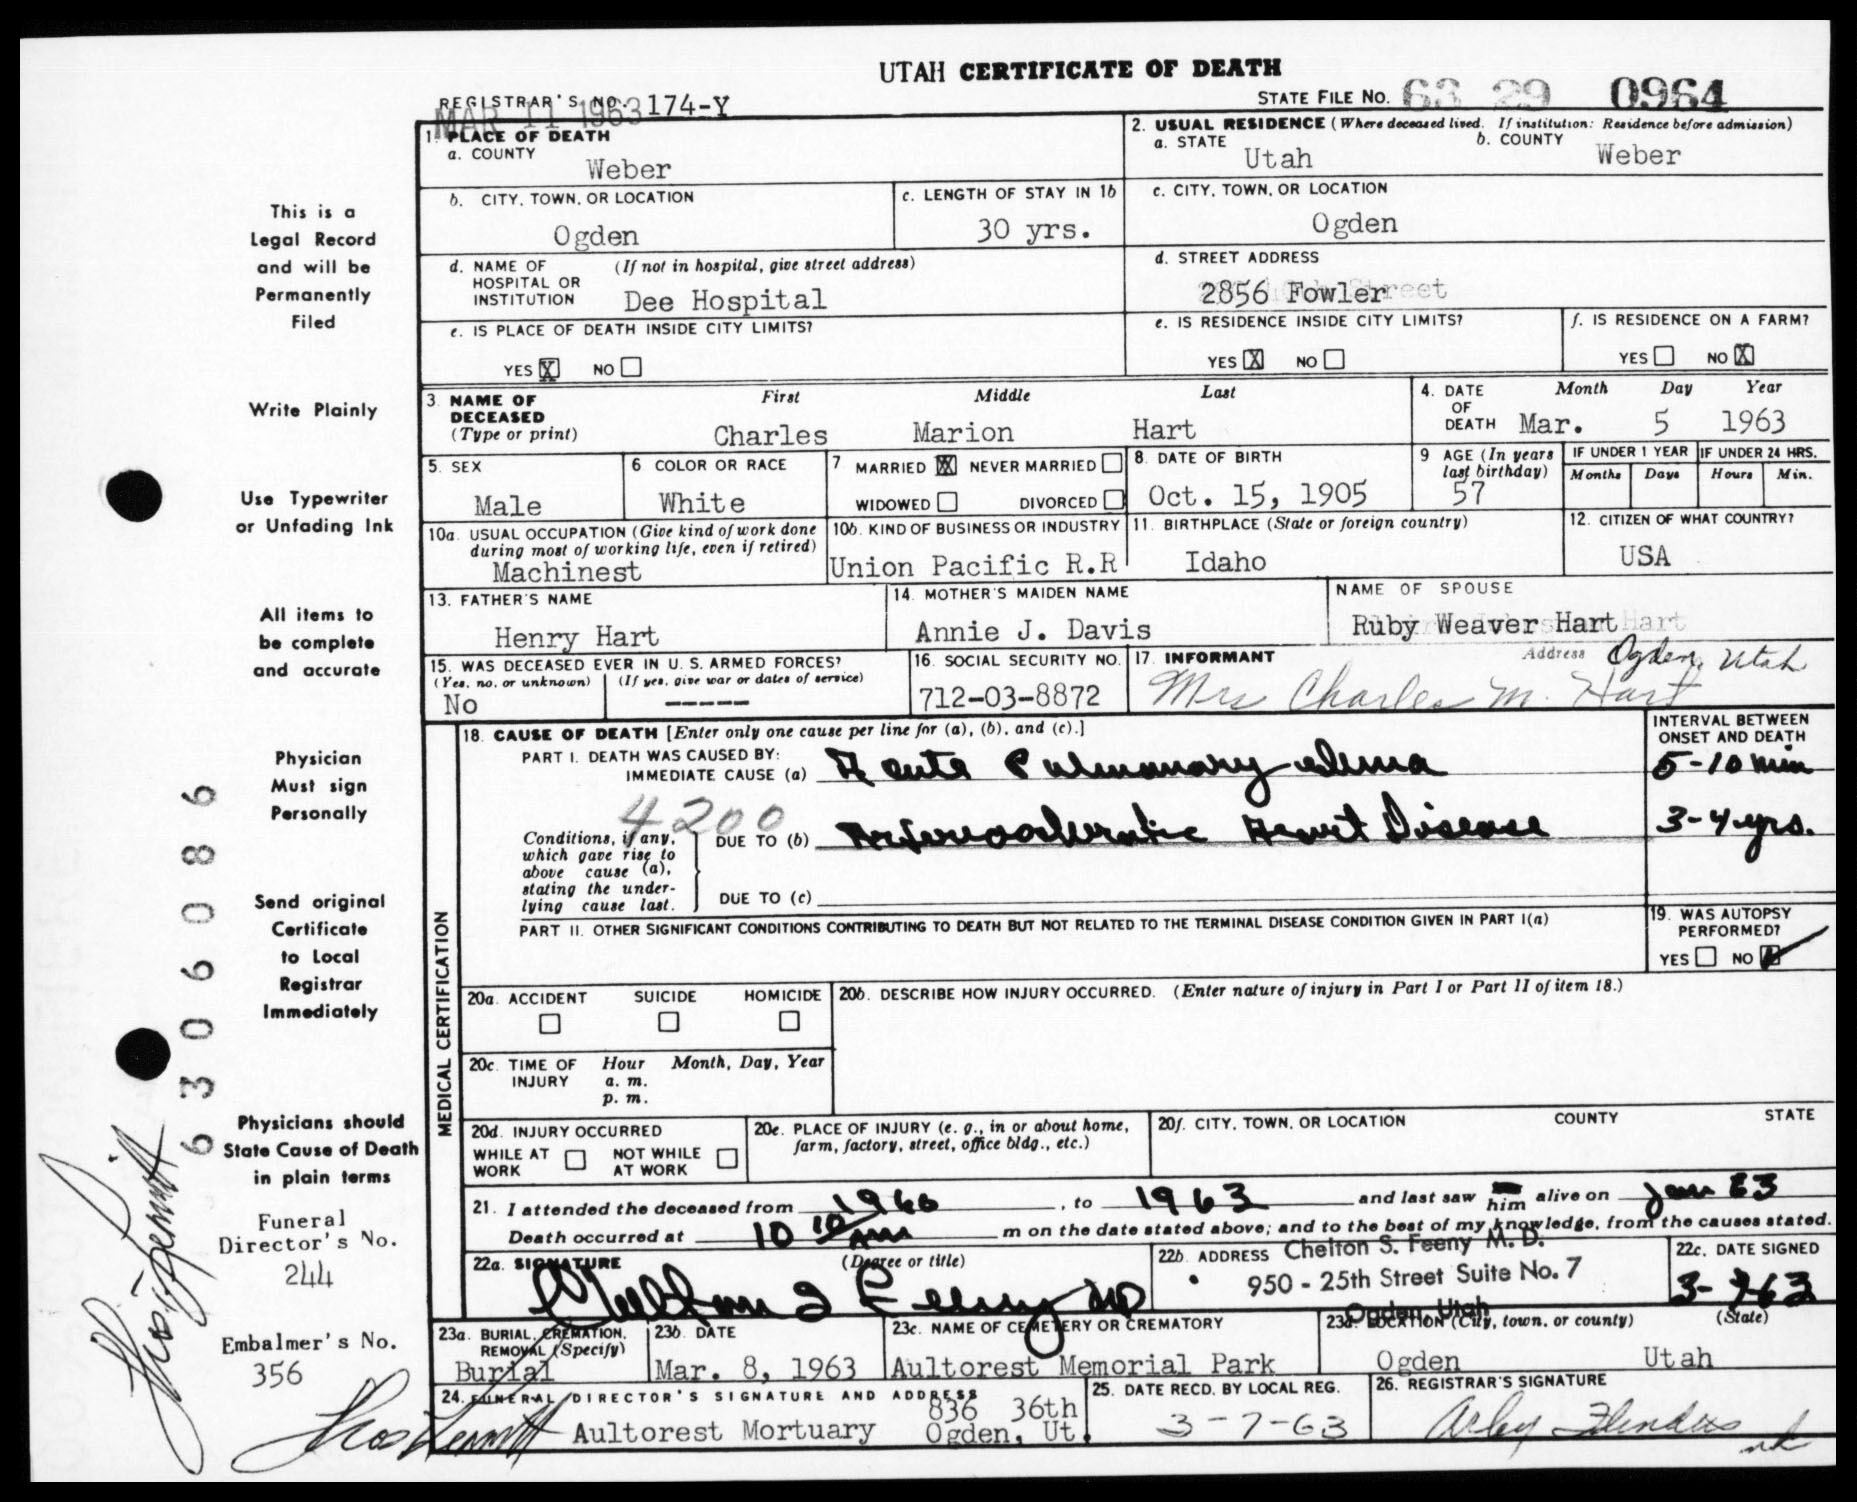 UTAH CERTIFICATE OF DEATH
REGISTRAR'S NO. 174-Y
MAR 11 1963
STATE FILE NO. 63 29 0964
1. PLACE OF DEATH
a. COUNTY
Weber
2. USUAL RESIDENCE (Where deceased lived. If institution: Residence before admission)
a. STATE Utah
b. COUNTY Weber
b. CITY, TOWN, OR LOCATION
Ogden
c. LENGTH OF STAY IN 1b
30 yrs.
c. CITY, TOWN, OR LOCATION
Ogden
d. NAME OF HOSPITAL OR INSTITUTION (If not in hospital, give street address)
Dee Hospital
d. STREET ADDRESS
2856 Fowler
e. IS PLACE OF DEATH INSIDE CITY LIMITS?
YES X NO
e. IS RESIDENCE INSIDE CITY LIMITS?
YES X NO
f. IS RESIDENCE ON A FARM?
YES NO X
3. NAME OF DECEASED (Type or print)
First Middle Last
Charles Marion Hart
4. DATE OF DEATH
Month Day Year
Mar. 5 1963
5. SEX
Male
6 COLOR OR RACE
White
7 MARRIED X NEVER MARRIED
WIDOWED DIVORCED
8. DATE OF BIRTH
Oct. 15, 1905
9 AGE (In years last birthday)
57
IF UNDER 1 YEAR
Months Days
IF UNDER 24 HRS.
Hours Min.
10a. USUAL OCCUPATION (Give kind of work done during most of working life, even if retired)
Machinest
10b. KIND OF BUSINESS OR INDUSTRY
Union Pacific R.R
11. BIRTHPLACE (State or foreign country)
Idaho
12. CITIZEN OF WHAT COUNTRY?
USA
13. FATHER'S NAME
Henry Hart
14. MOTHER'S MAIDEN NAME
Annie J. Davis
NAME OF SPOUSE
Ruby Weaver Hart
15. WAS DECEASED EVER IN U. S. ARMED FORCES?
(Yes, no, or unknown) (If yes, give war or dates of service)
No -----
16. SOCIAL SECURITY NO.
712-03-8872
17. INFORMANT
Address Ogden, Utah
Mrs Charles M. Hart
MEDICAL CERTIFICATION
18. CAUSE OF DEATH [Enter only one cause per line for (a), (b), and (c).]
INTERVAL BETWEEN ONSET AND DEATH
PART I. DEATH WAS CAUSED BY:
IMMEDIATE CAUSE (a) Acute Pulmonary edema
5-10 min
4200
Conditions, if any, which gave rise to above cause (a), stating the underlying cause last.
DUE TO (b) Arteriosclerotic Heart Disease
3-4 yrs.
DUE TO (c)
PART II. OTHER SIGNIFICANT CONDITIONS CONTRIBUTING TO DEATH BUT NOT RELATED TO THE TERMINAL DISEASE CONDITION GIVEN IN PART I(a)
19. WAS AUTOPSY PERFORMED?
YES NO
20a. ACCIDENT SUICIDE HOMICIDE
20b. DESCRIBE HOW INJURY OCCURRED. (Enter nature of injury in Part I or Part II of item 18.)
20c. TIME OF INJURY
Hour Month, Day, Year
a. m.
p. m.
20d. INJURY OCCURRED
WHILE AT WORK NOT WHILE AT WORK
20e. PLACE OF INJURY (e. g., in or about home, farm, factory, street, office bldg., etc.)
20f. CITY, TOWN, OR LOCATION COUNTY STATE
21. I attended the deceased from 1960, to 1963 and last saw him alive on Jan 63
Death occurred at 10 10 AM m on the date stated above; and to the best of my knowledge, from the causes stated.
22a. SIGNATURE (Degree or title)
22b. ADDRESS Chelton S. Feeny M. D.
950 - 25th Street Suite No. 7
Ogden, Utah
22c. DATE SIGNED
3-7-63
23a. BURIAL, CREMATION, REMOVAL (Specify)
Burial
23b. DATE
Mar. 8, 1963
23c. NAME OF CEMETERY OR CREMATORY
Aultorest Memorial Park
23d. LOCATION (City, town, or county) (State)
Ogden Utah
24. FUNERAL DIRECTOR'S SIGNATURE AND ADDRESS
Aultorest Mortuary 836 36th
Ogden, Ut.
25. DATE RECD. BY LOCAL REG.
3-7-63
26. REGISTRAR'S SIGNATURE
This is a
Legal Record
and will be
Permanently
Filed
Write Plainly
Use Typewriter
or Unfading Ink
All items to
be complete
and accurate
Physician
Must sign
Personally
Send original
Certificate
to Local
Registrar
Immediately
Physicians should
State Cause of Death
in plain terms
Funeral
Director's No.
244
Embalmer's No.
356
6306086